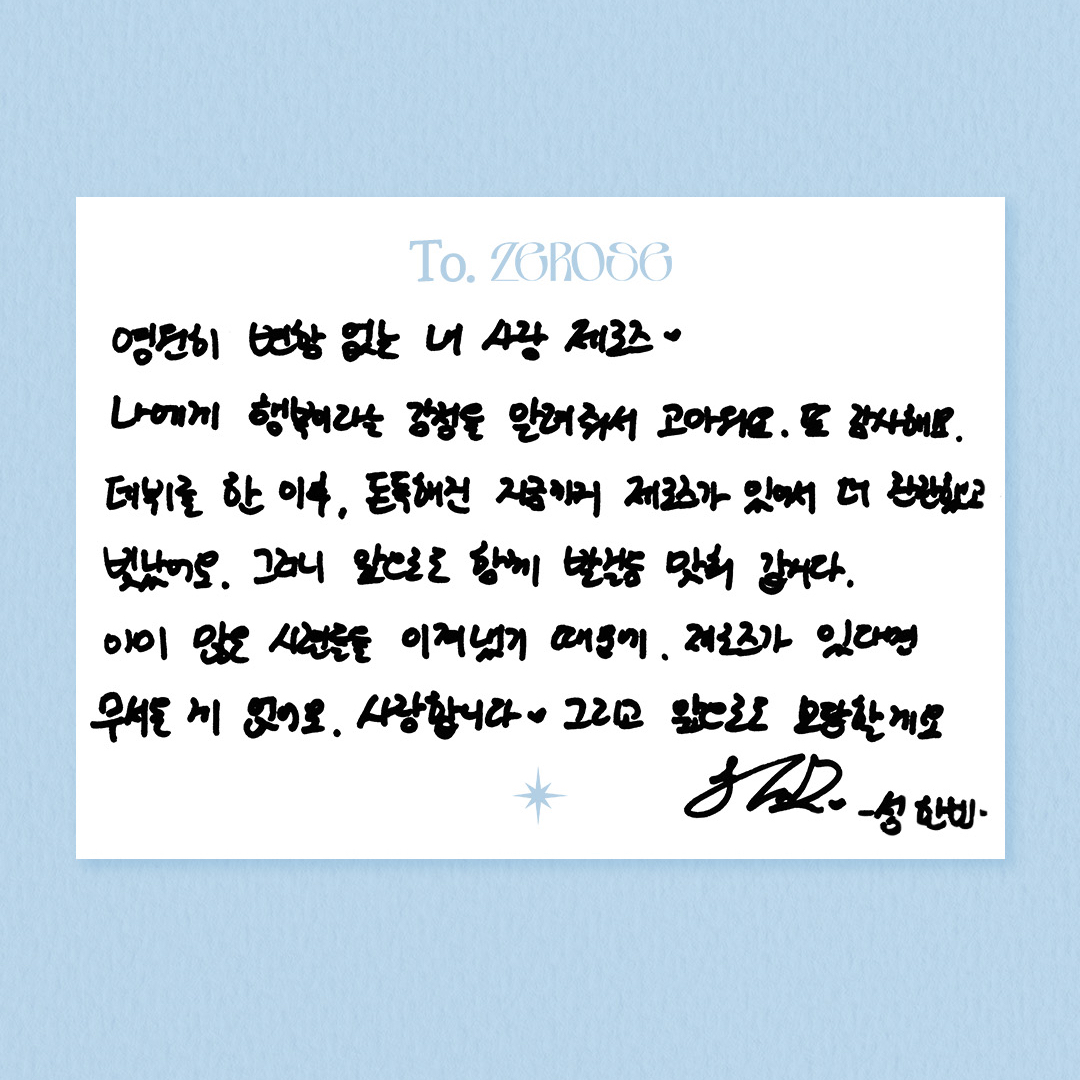 To. ZEROSE
영원히 변함 없는 내 사랑 제로즈♥
나에게 행복이라는 감정을 알려줘서 고마워요. 또 감사해요.
데뷔를 한 이후, 돈독해진 지금까지 제로즈가 있어서 더 단단했고
빛났어요. 그러니 앞으로도 함께 발걸음 맞춰 갑시다.
이미 많은 시련들을 이겨냈기 때문에. 제로즈가 있다면
무서울 게 없어요. 사랑합니다♥ 그리고 앞으로도 보답할게요
-성한빈-